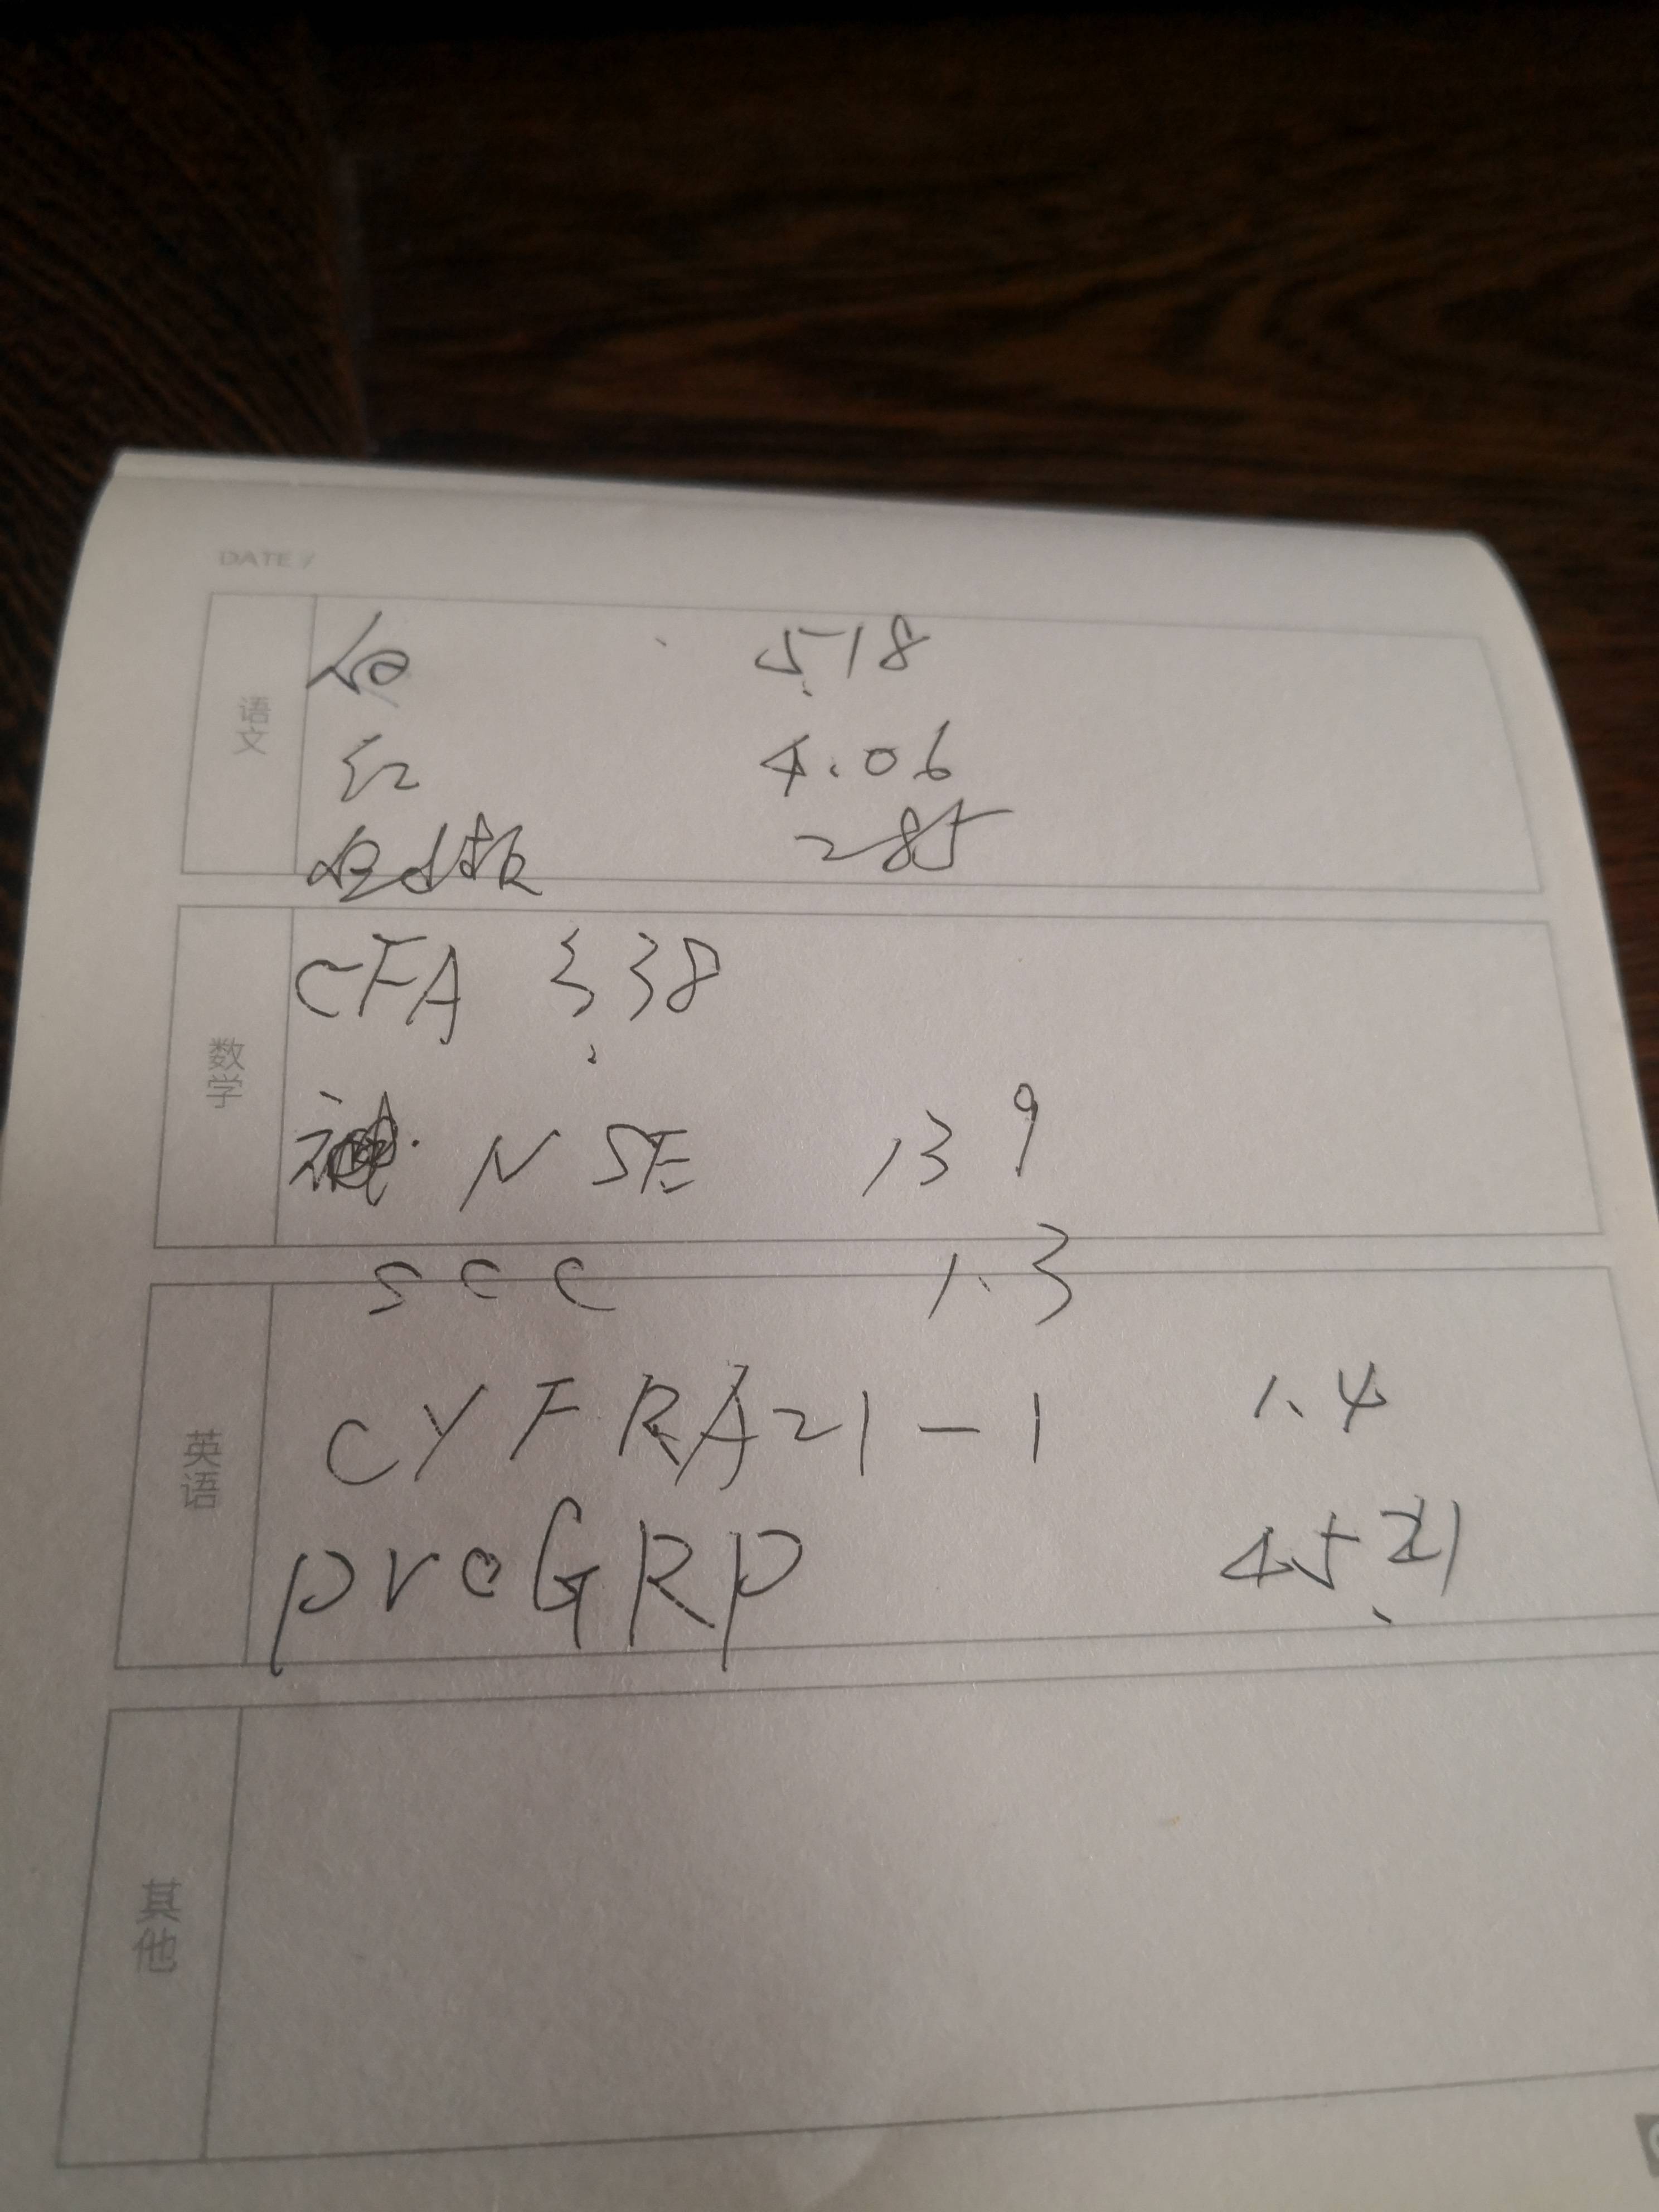 DATE /
语文
白 5.18
红 4.06
血小板 285
数学
CFA 3.38
NSE 13.9
SCC 1.3
英语
CYFRA21-1 1.4
proGRP 45.21
其他